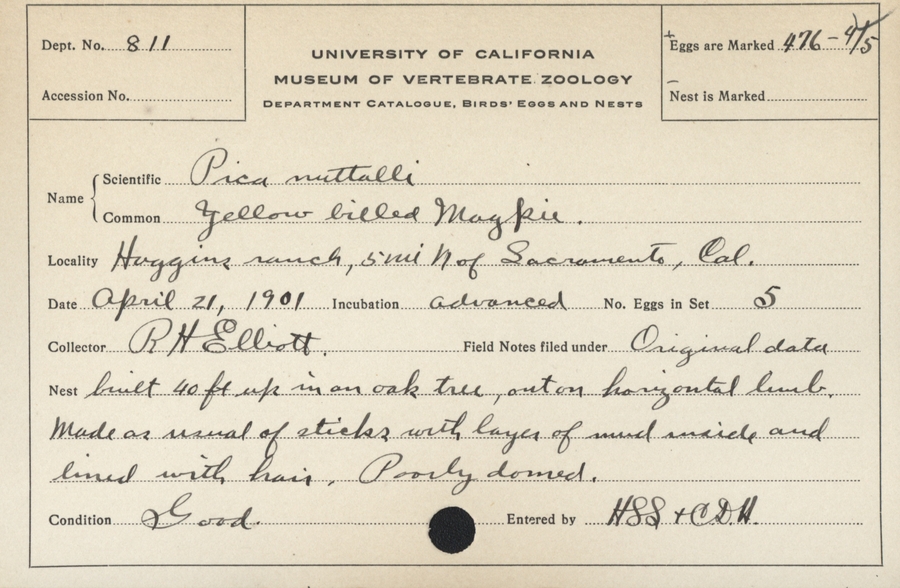 Dept. No. 811
Accession No.
UNIVERSITY OF CALIFORNIA
MUSEUM OF VERTEBRATE ZOOLOGY
DEPARTMENT CATALOGUE, BIRDS' EGGS AND NESTS
Eggs are Marked 476-4/5
Nest is Marked
Name
Scientific Pica nuttalli
Common Yellow billed Magpie.
Locality Huggins ranch, 5 mi N of Sacramento, Cal.
Date April 21, 1901 Incubation advanced No. Eggs in Set 5
Collector R H Elliott. Field Notes filed under Original data
Nest built 40 ft up in an oak tree, out on horizontal limb.
Made as usual of sticks with layer of mud inside and
lined with hair. Poorly domed.
Condition Good. Entered by HSS + CDH.